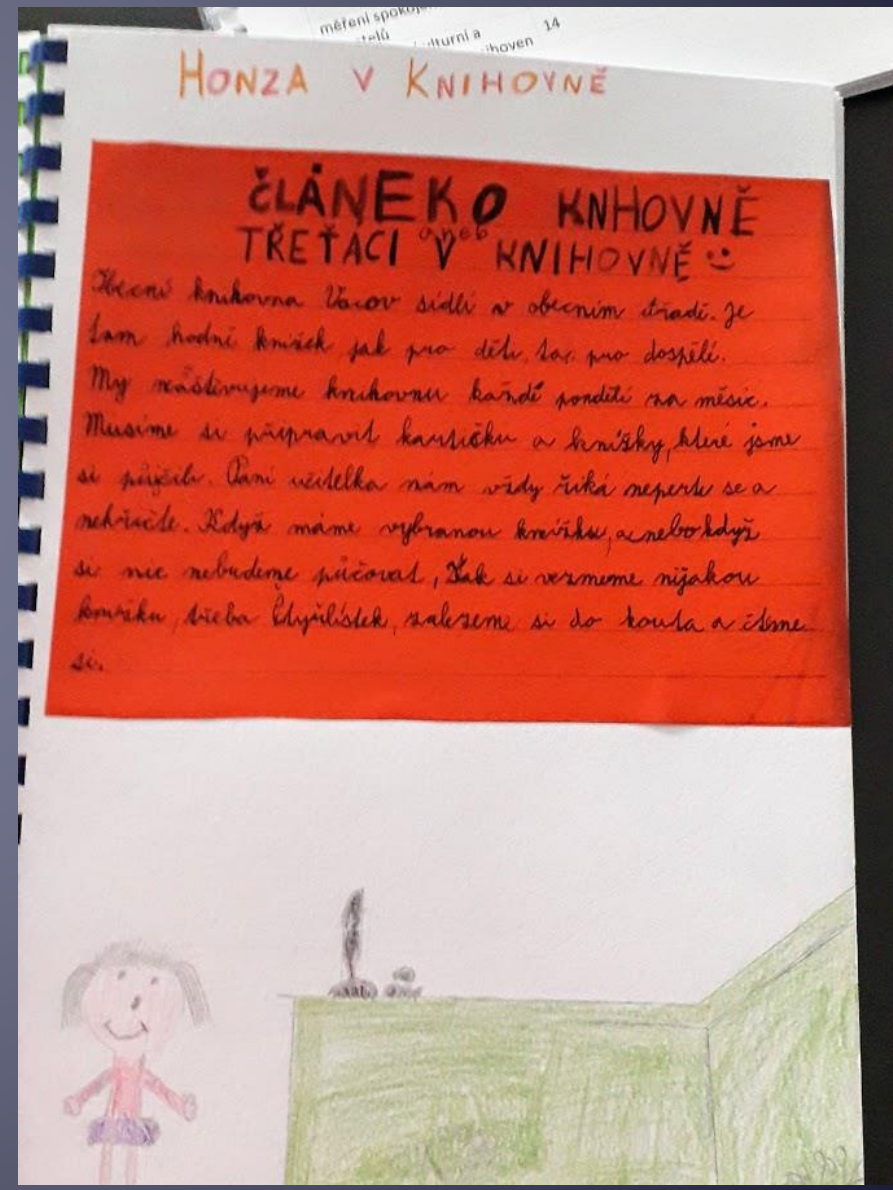 měření spokojen
telů
lturní a
hoven 14
HONZA V KNIHOVNĚ
ČLÁNEK O KNHOVNĚ
aneb
TŘEŤACI V KNIHOVNĚ
Obecní knihovna Vacov sídlí v obecním úřadě. Je
tam hodně knížek jak pro děti, tak pro dospělé.
My navštěvujeme knihovnu každé pondělí za měsíc.
Musíme si připravit kartičku a knížky, které jsme
si půjčili. Paní učitelka nám vždy říká neperte se a
nekřičte. Když máme vybranou knížku, a nebo když
si nic nebudeme půčovat, tak si vezmeme nijakou
knížku, třeba Čtyřlístek, zalezeme si do kouta a čteme
si.